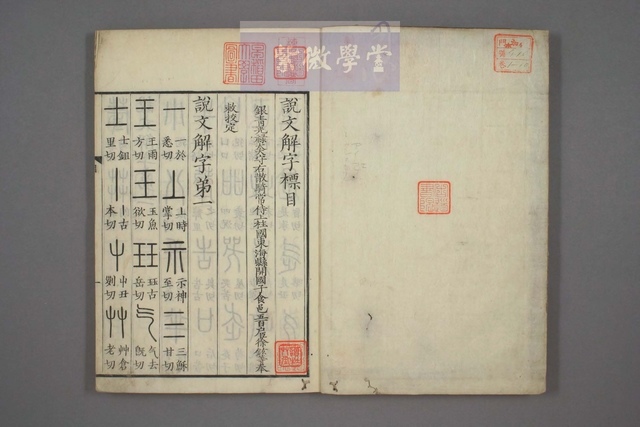 紫微學堂
說文解字標目
銀青光祿大夫守右散騎常侍上柱國東海縣開國子食邑五百戶徐鉉等奉
敕校定
說文解字第一
一 一於悉切 丄 上時掌切 示 示神至切 三 三穌甘切
王 王雨方切 玉 玉魚欲切 玨 玨古岳切 气 气去旣切
士 士鉏里切 丨 丨古本切 屮 屮丑列切 艸 艸倉老切